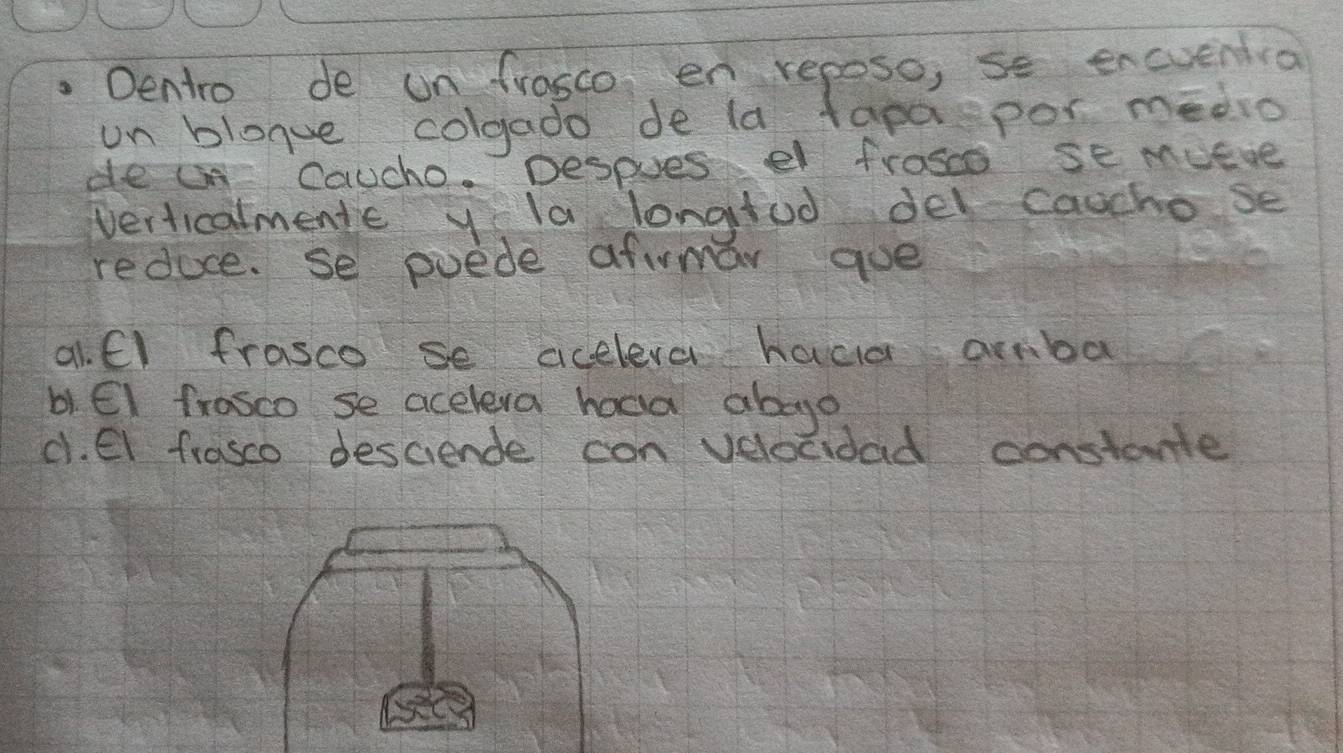 • Dentro de un frasco en reposo, se encuentra
un bloque colgado de la tapa por medio
de un caucho. Despues el frasco se mueve
verticalmente y la longitud del caucho se
reduce. Se puede afirmar que
a). El frasco se acelera hacia arriba
b). El frasco se acelera hacia abajo
c). El frasco desciende con velocidad constante